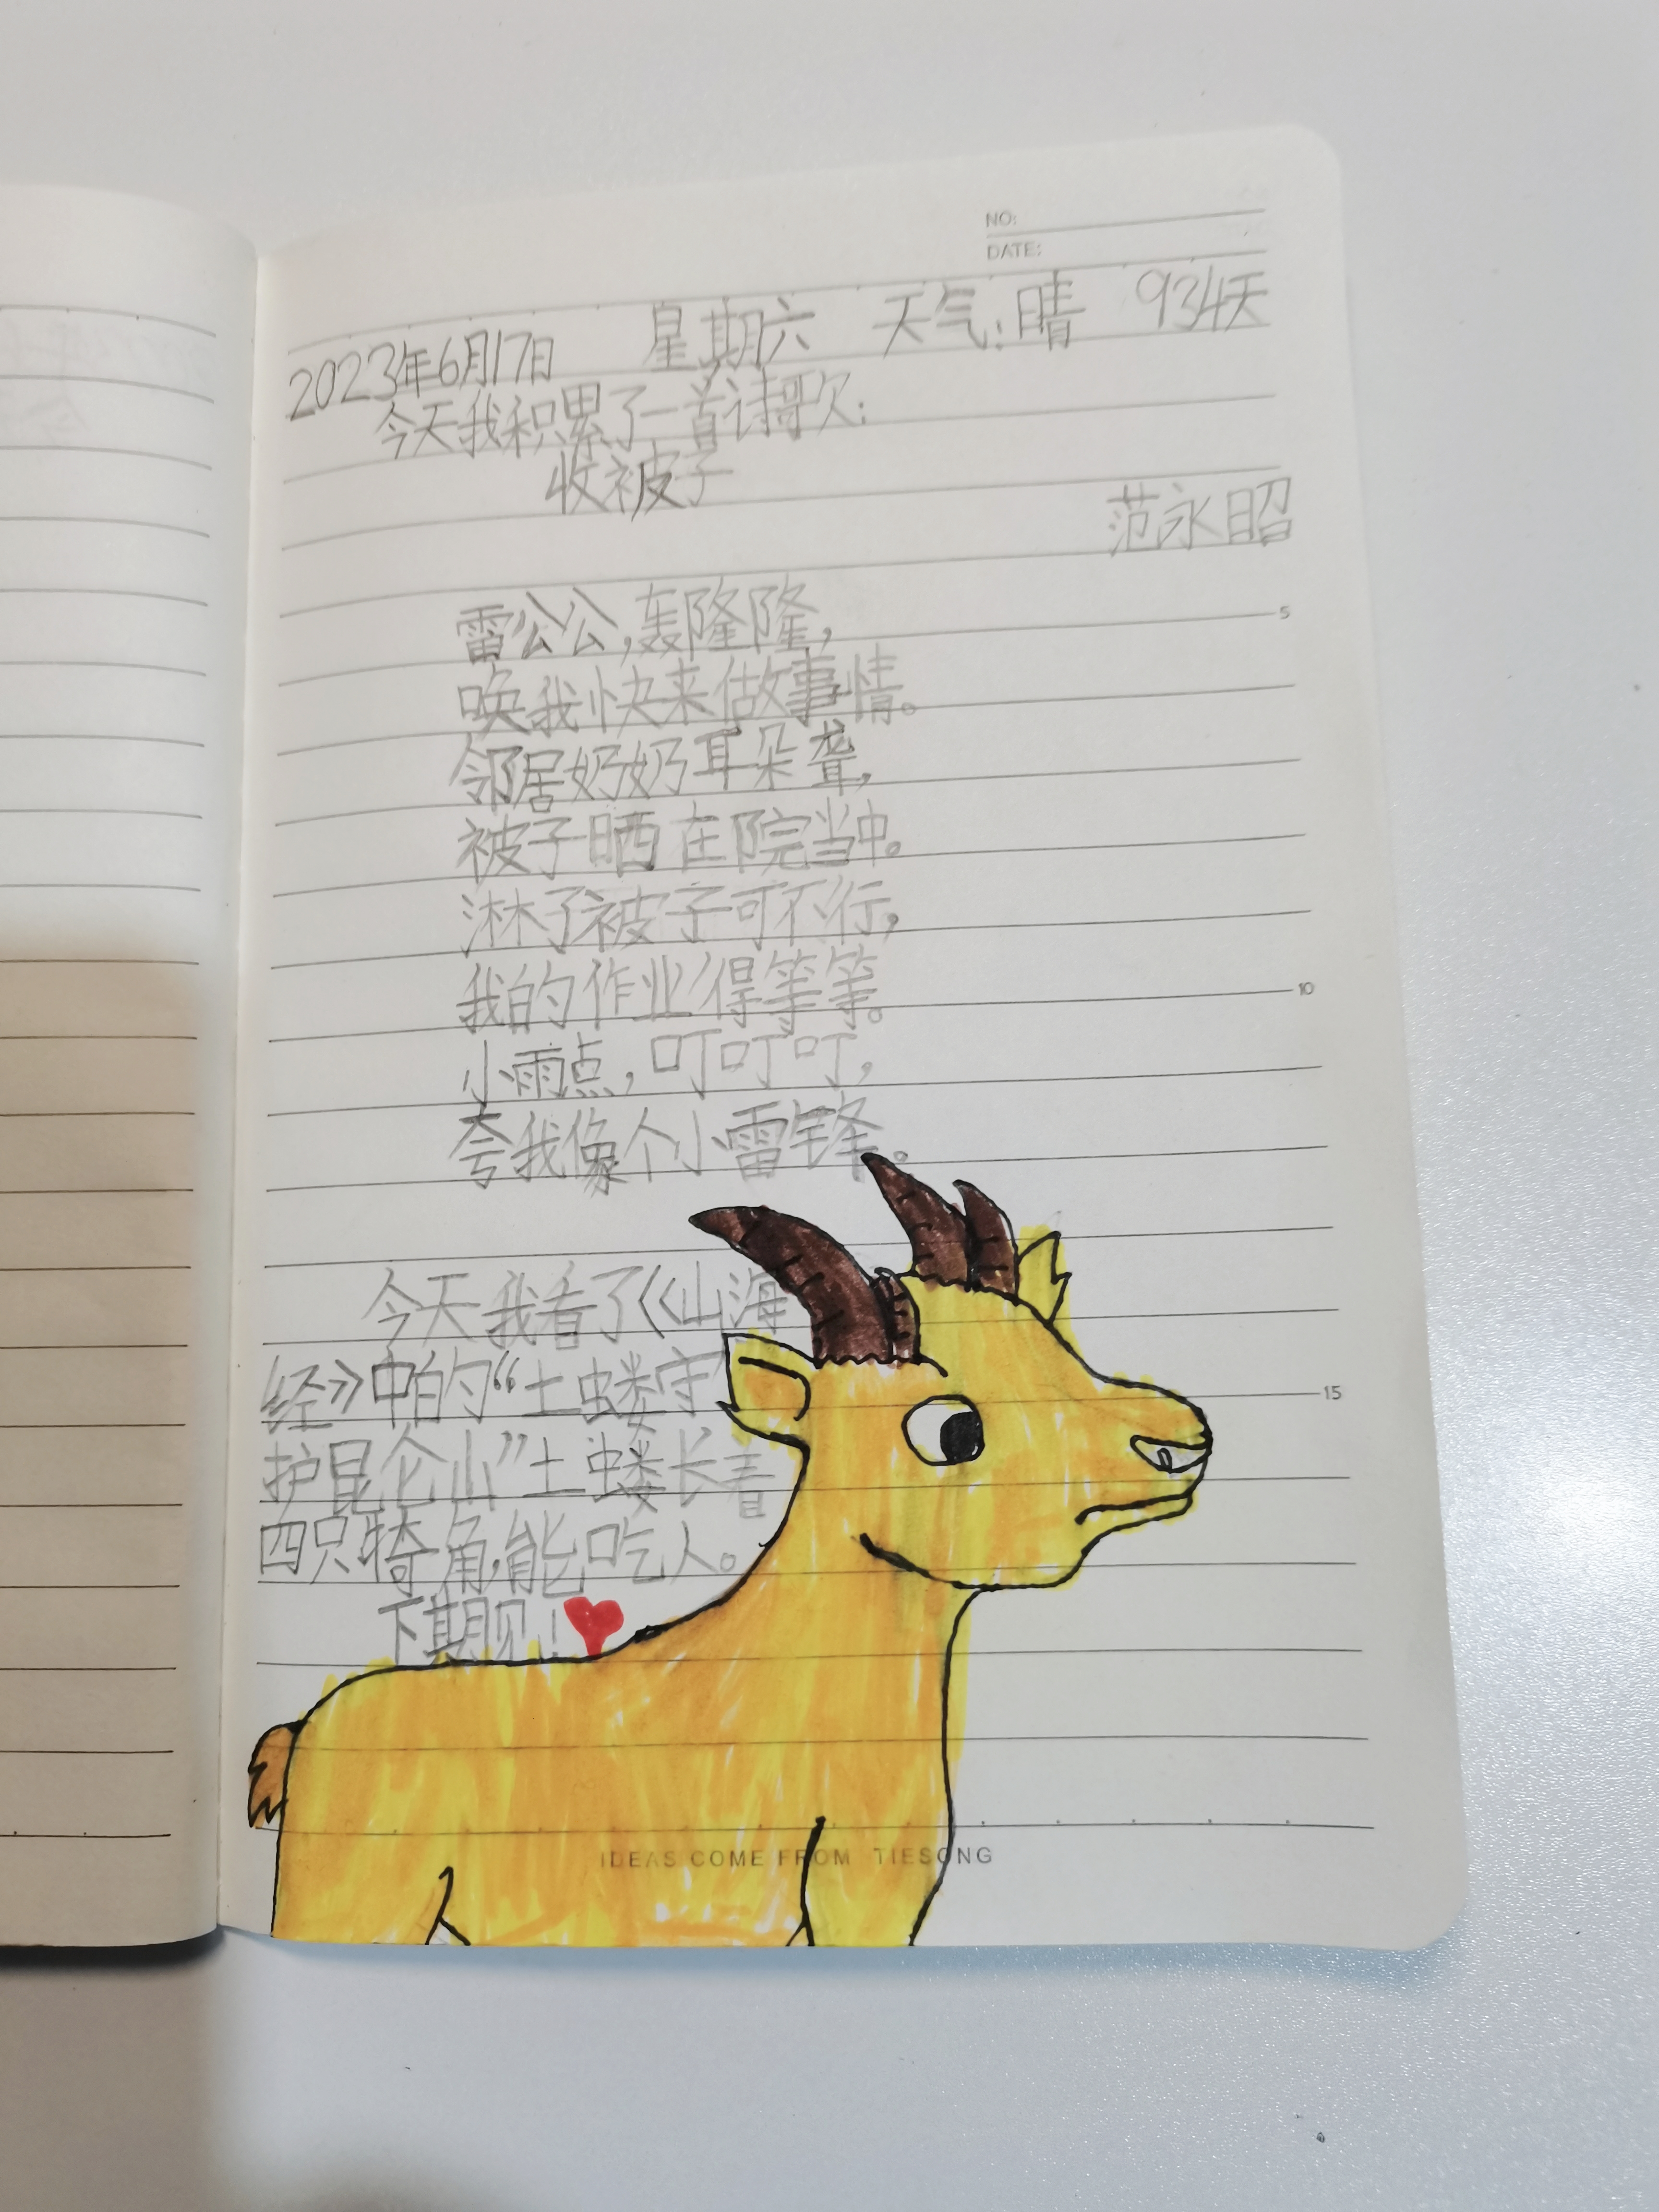 NO:
DATE:
2023年6月17日 星期六 天气:晴 934天
今天我积累了一首诗歌:
收被子
范永昭
雷公公,轰隆隆,
唤我快来做事情。
邻居奶奶耳朵聋,
被子晒在院当中。
淋了被子可不行,
我的作业得等等。
小雨点,叮叮叮,
夸我像个小雷锋。
今天我看了《山海
经》中的“土蝼守
护昆仑山”土蝼长着
四只犄角,能吃人。
下期见!
5
10
15
IDEAS COME FROM TIESONG